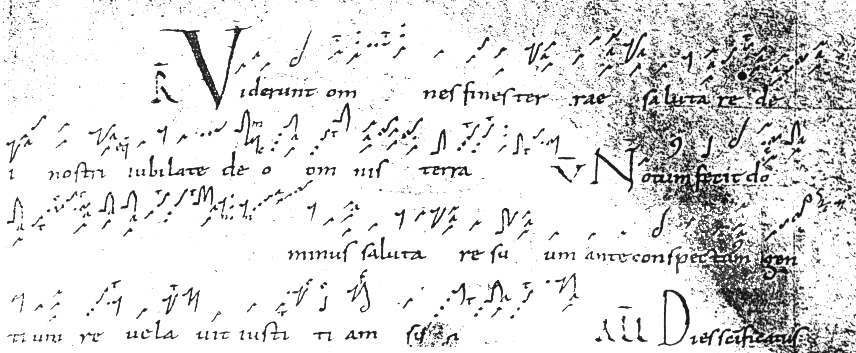 R Viderunt om nes fines ter rae saluta re de
i nostri iubilate de o om nis terra V Notum fecit do
minus saluta re su um ante conspectum gen
tium re vela vit iusti ti am su
Dies scificatus